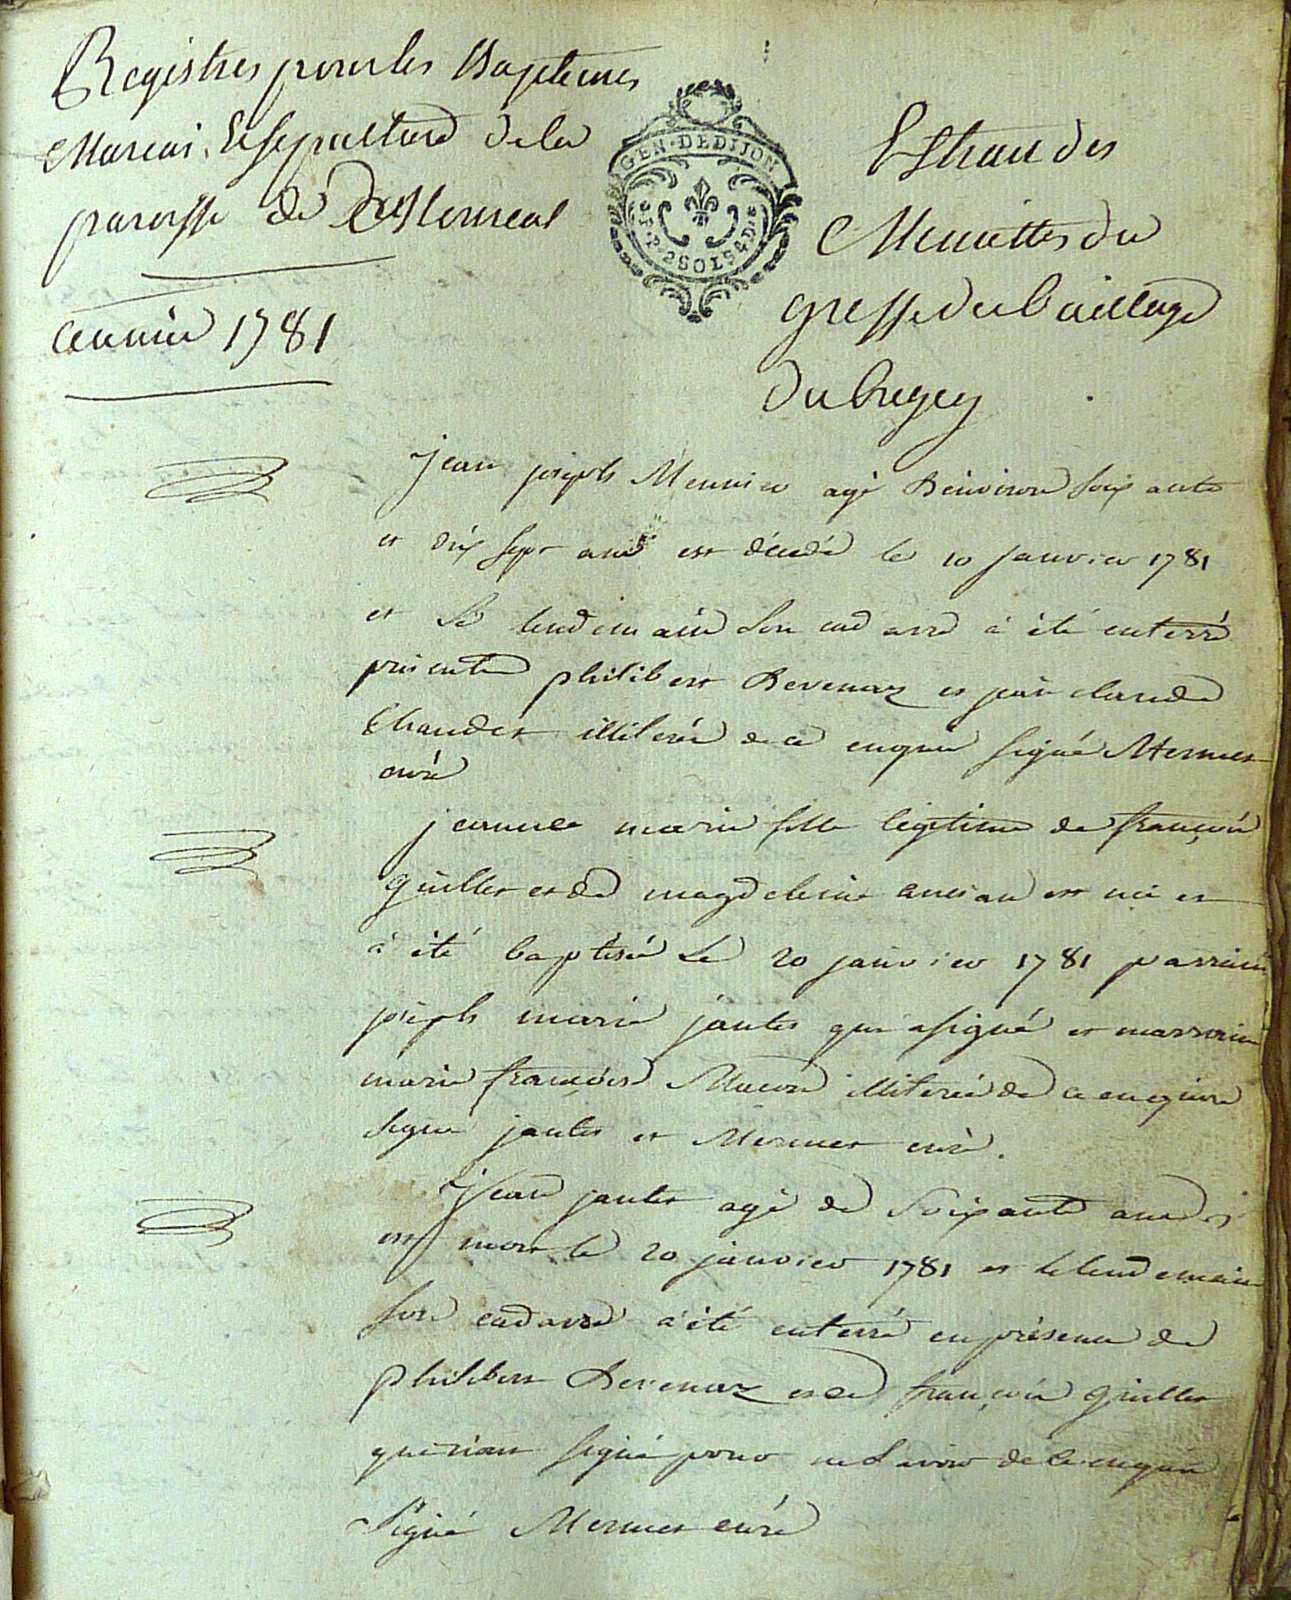 Registres pour les Baptemes
Mariai. & sepulture de la
paroisse de
année 1781
GEN · DE DIJON
2 SOLS 4 D.
Extrait des
Minuttes du
greffe du bailliage
du bugey
jean joseph Meunier agé d'environ soixante
et dix sept ans est décédé le 10 janvier 1781
et le lendemain son cadavre à été enterré
présents philibert Devenaz et jean claude
Chaudet illiteré de ce enquis signé Mermet
curé
jeanne marie fille legitime de françois
guillet et de magdeleine est née et
à été baptisée le 20 janvier 1781 parrain
joseph marie jantet qui a signé et marraine
marie françoise illiterée de ce enquise
signé jantet et Mermet curé.
jean jantet agé de soixante ans
est mort le 20 janvier 1781 et le lendemain
son cadavre a été enterré en présence de
philibert Devenaz et de françois guillet
qui n'ont signé pour ne savoir de ce enquis
Signé Mermet curé